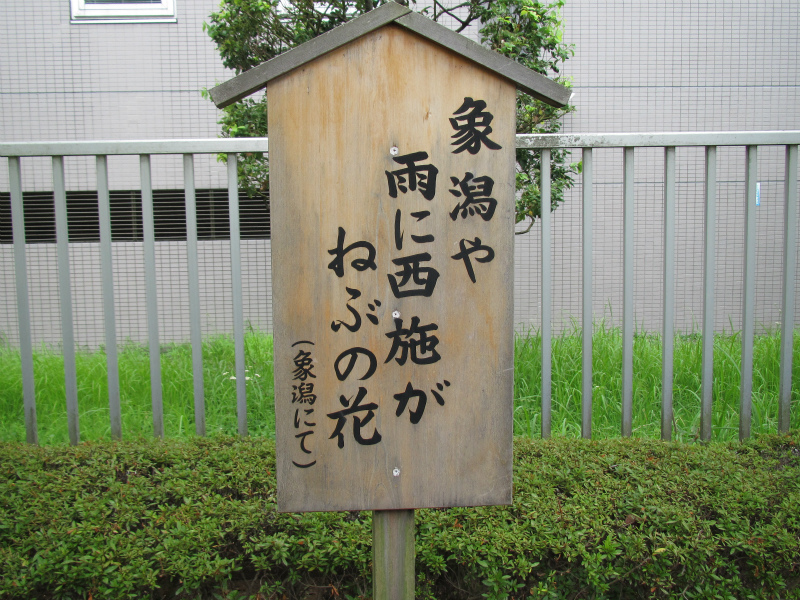 象潟や
雨に西施が
ねぶの花
（象潟にて）